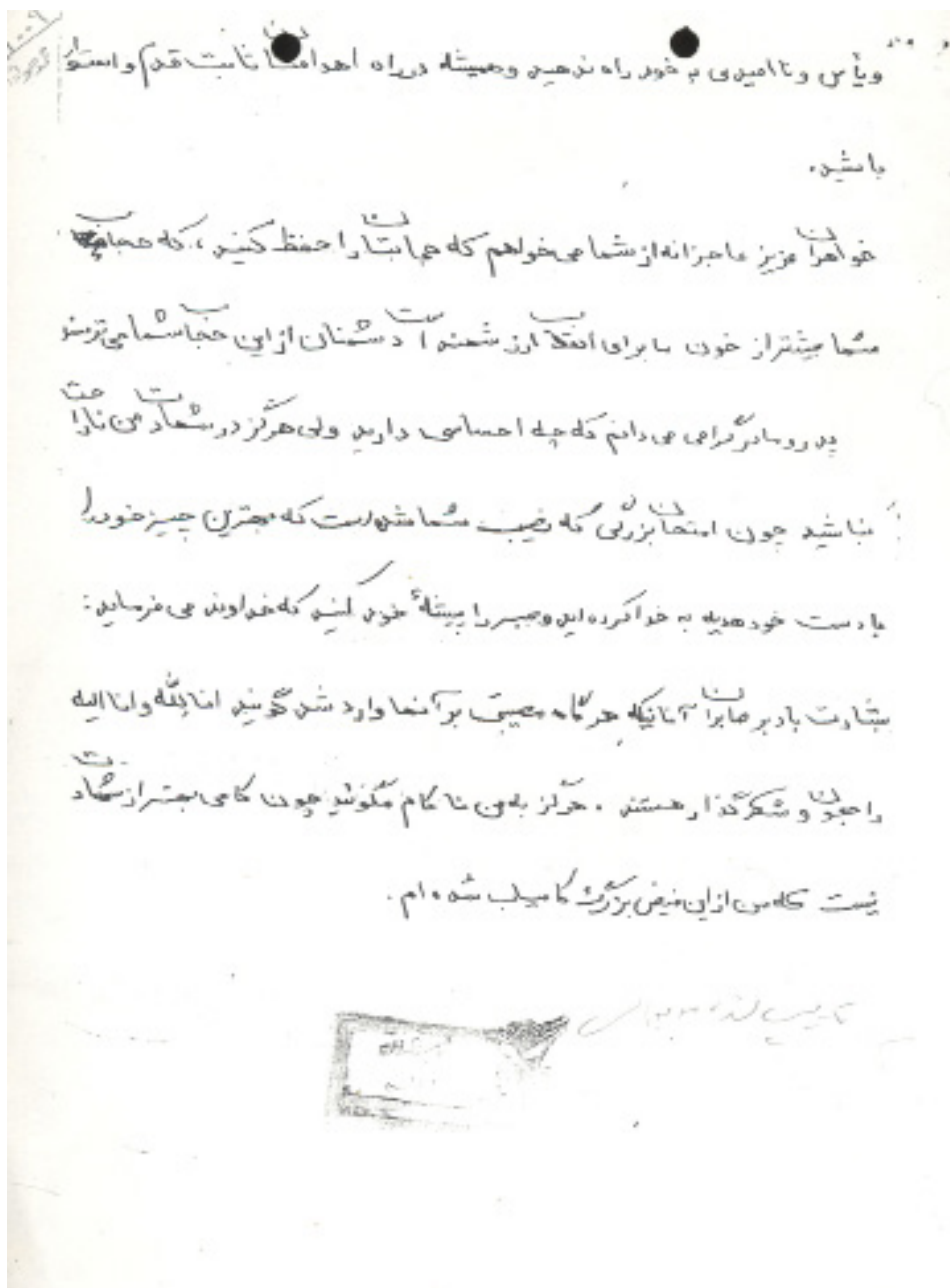 ویأس و ناامیدی به خود راه ندهید و همیشه در راه اهدافتان ثابت قدم و استوار
باشید.
خواهران عزیز عاجزانه از شما می‌خواهم که حجابتان را حفظ کنید، که حجاب
شما بیشتر از خون ما برای انقلاب ارزشمند است دشمنان از این حجاب شما می‌ترسند
پدر و مادر گرامی می‌دانم که چه احساسی دارید ولی هرگز در شهادت من ناراحت
نباشید چون امتحان بزرگی که نصیب شما شده است که بهترین چیز خود را
با دست خود هدیه به خدا کرده اید و صبر را پیشهٔ خود کنید که خداوند می فرماید:
بشارت باد بر صابران آنانیکه هر گاه مصیبتی بر آنها وارد شد گویند انا لله و انا الیه
راجعون و شکرگذار هستند. هرگز به من ناکام مگوئید چون کامی بهتر از شهادت
نیست که من از این فیض بزرگ کامیاب شده ام.